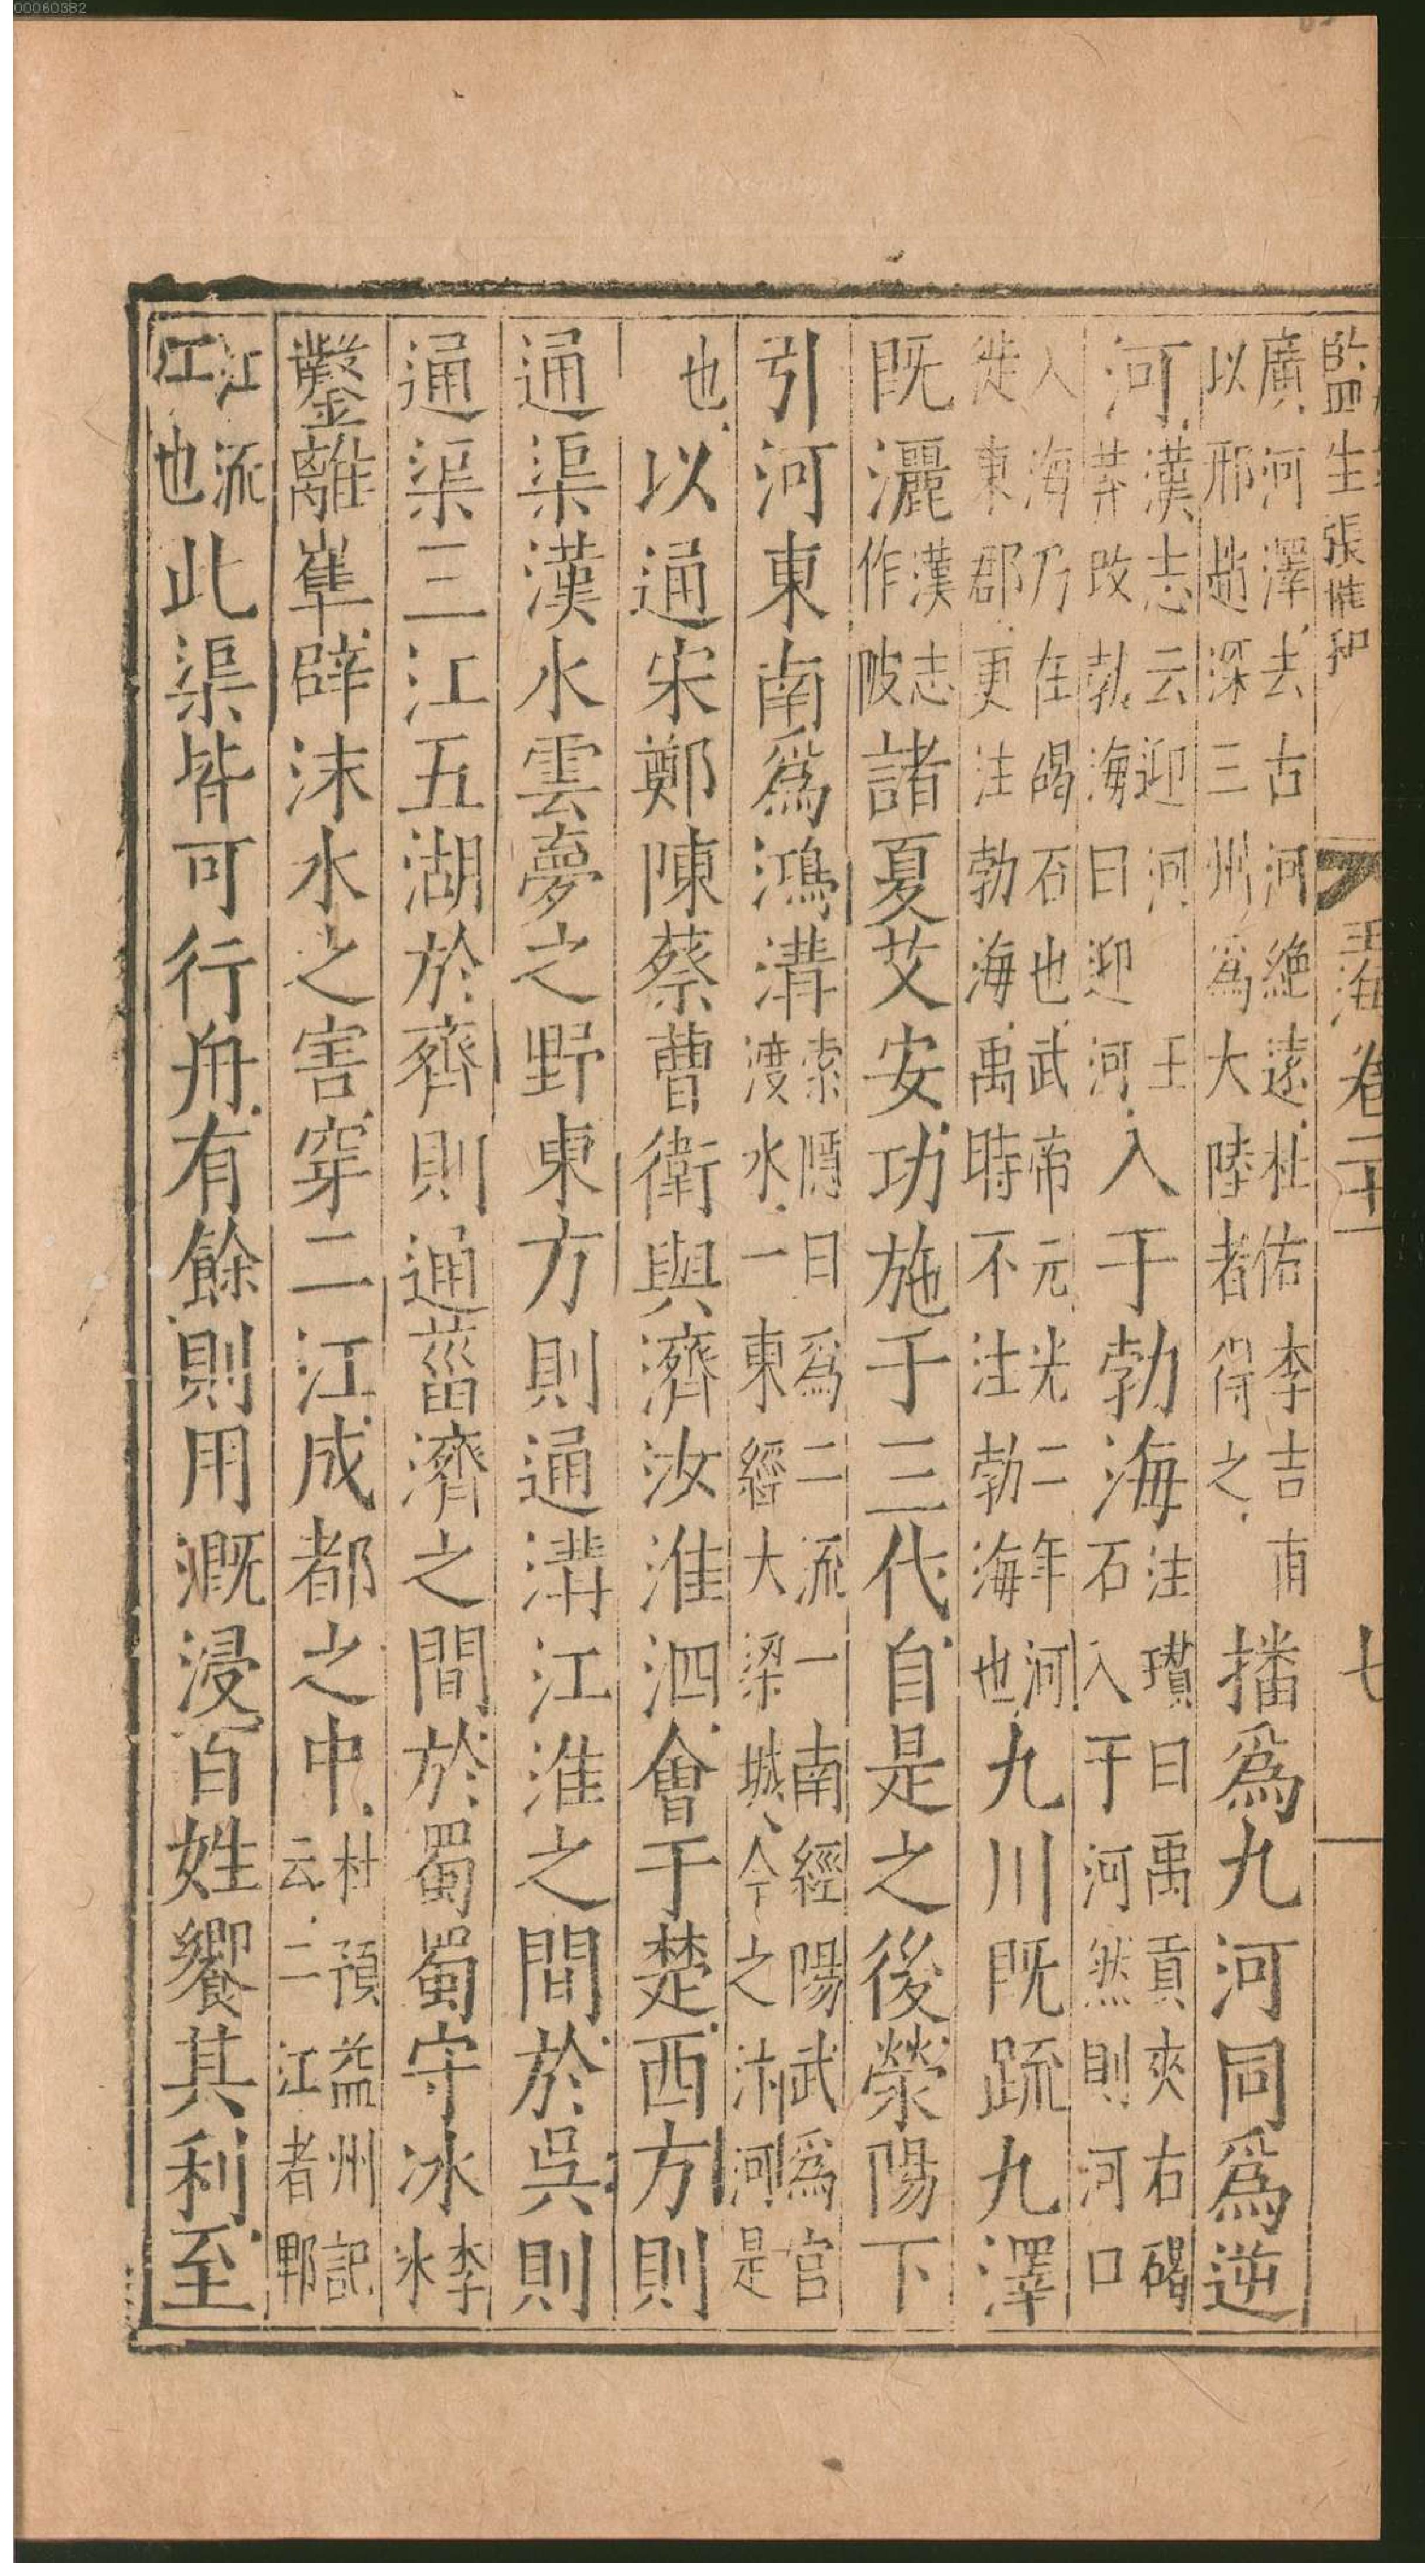 00060382
監生張惟和 玉海卷二十一 七
廣河澤去古河絶遠杜佑李吉甫
以邢趙深三州爲大陸者得之
播爲九河同爲逆
河
漢志云迎河王
莽改勃海曰迎河
入于勃海
注瓉曰禹貢夾右碣
石入于河然則河口
入海乃在碣石也武帝元光二年河
徙東郡更注勃海禹時不注勃海也
九川既疏九澤
既灑
漢志
作陂
諸夏艾安功施于三代自是之後滎陽下
引河東南爲鴻溝
索隱曰爲二流一南經陽武爲官
渡水一東經大梁城今之汴河是
也
以通宋鄭陳蔡曹衛與濟汝淮泗會于楚西方則
通渠漢水雲夢之野東方則通溝江淮之間於吳則
通渠三江五湖於齊則通菑濟之間於蜀蜀守冰
李
冰
鑿離崋辟沫水之害穿二江成都之中
杜預益州記
云二江者郫
江流
江也
此渠皆可行舟有餘則用溉浸百姓饗其利至